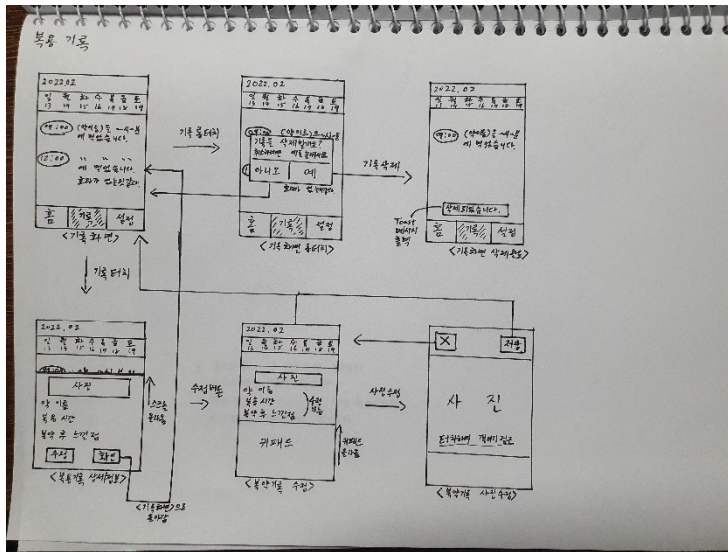 복용 기록
2022.02
일 월 화 수 목 금 토
13 14 15 16 17 18 19
09:00 (약이름)을 ~시~분
에 먹었습니다.
12:00 〃 〃 〃
에 먹었습니다.
효과가 있는것같다.
홈 기록 설정
<기록 화면>
기록 롱터치
2022.02
일 월 화 수 목 금 토
13 14 15 16 17 18 19
기록을 삭제할까요?
아니오 예
홈 기록 설정
<기록화면 롱터치>
기록 삭제
2022.02
일 월 화 수 목 금 토
13 14 15 16 17 18 19
09:00 (약이름)을 ~시~분
에 먹었습니다.
삭제되었습니다.
홈 기록 설정
Toast
메시지
출력
<기록화면 삭제완료>
기록 터치
2022.02
일 월 화 수 목 금 토
13 14 15 16 17 18 19
사진
약 이름
복용 시간
복약 후 느낀점
수정 확인
<복용기록 상세정보>
스크롤
올라옴
<기록화면>으로
돌아감
수정버튼
2022.02
일 월 화 수 목 금 토
13 14 15 16 17 18 19
사진
약 이름
복용 시간
복약 후 느낀점
수정
가능
키패드
키패드
올라옴
<복약기록 수정>
사진수정
X 적용
사 진
터치하여 갤러리 접근
<복약기록 사진수정>